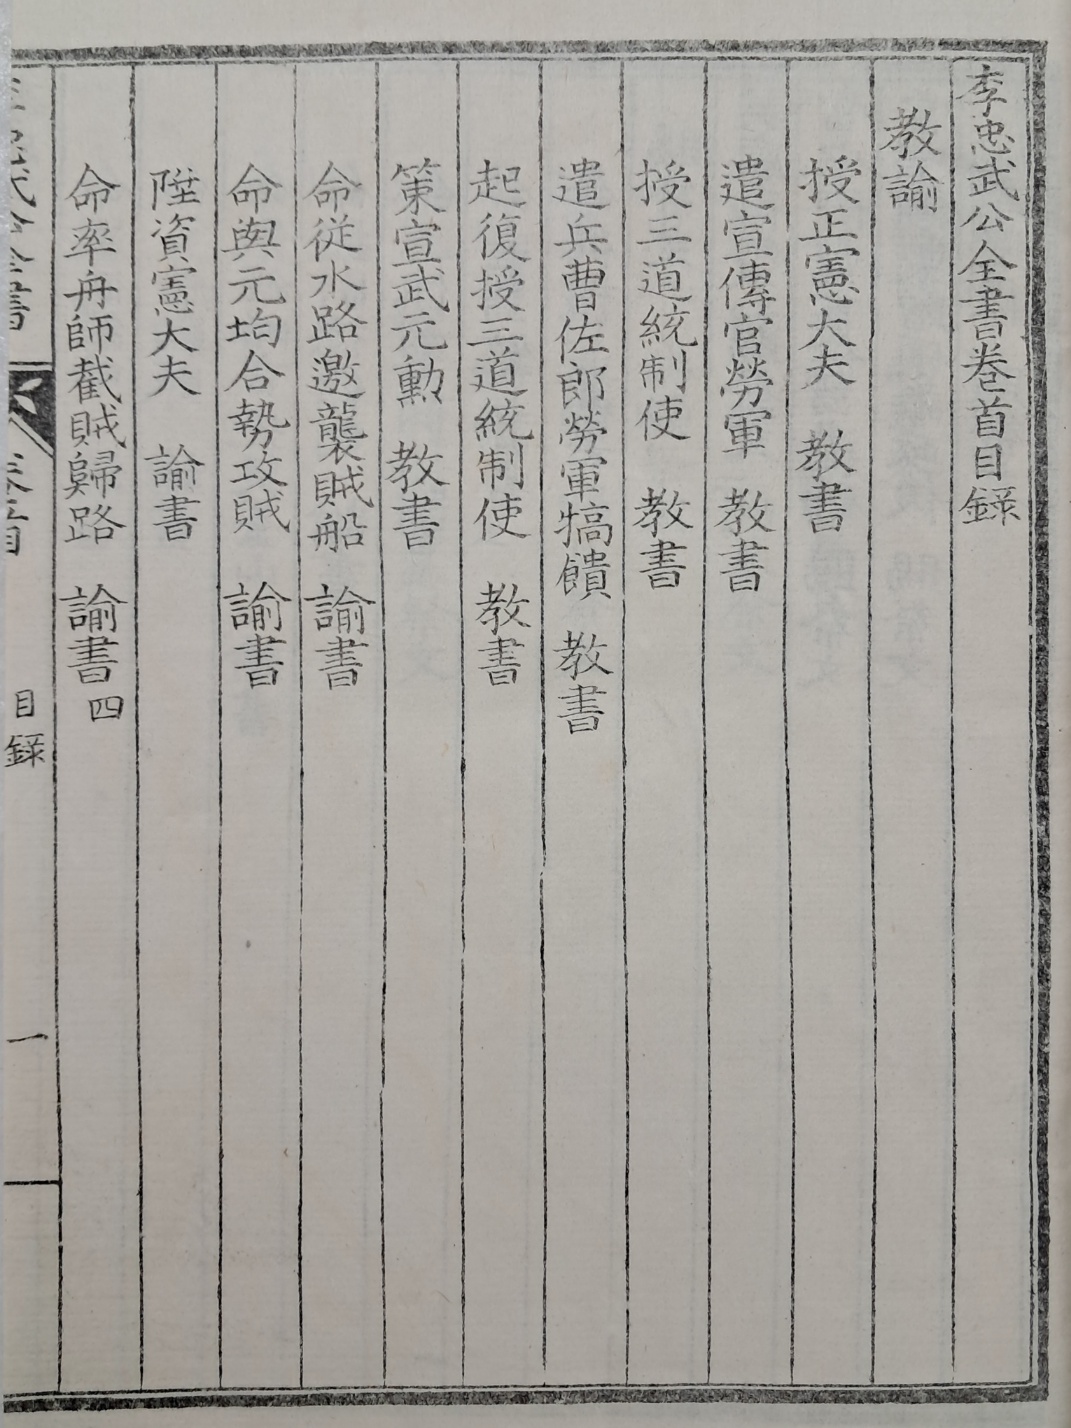 李忠武公全書卷首目錄
教諭
授正憲大夫 教書
遣宣傳官勞軍 教書
授三道統制使 教書
遣兵曹佐郎勞軍犒饋 教書
起復授三道統制使 教書
策宣武元勳 教書
命從水路邀襲賊船 諭書
命與元均合勢攻賊 諭書
陞資憲大夫 諭書
命率舟師截賊歸路 諭書 四
李忠武公全書 卷首 目錄 一